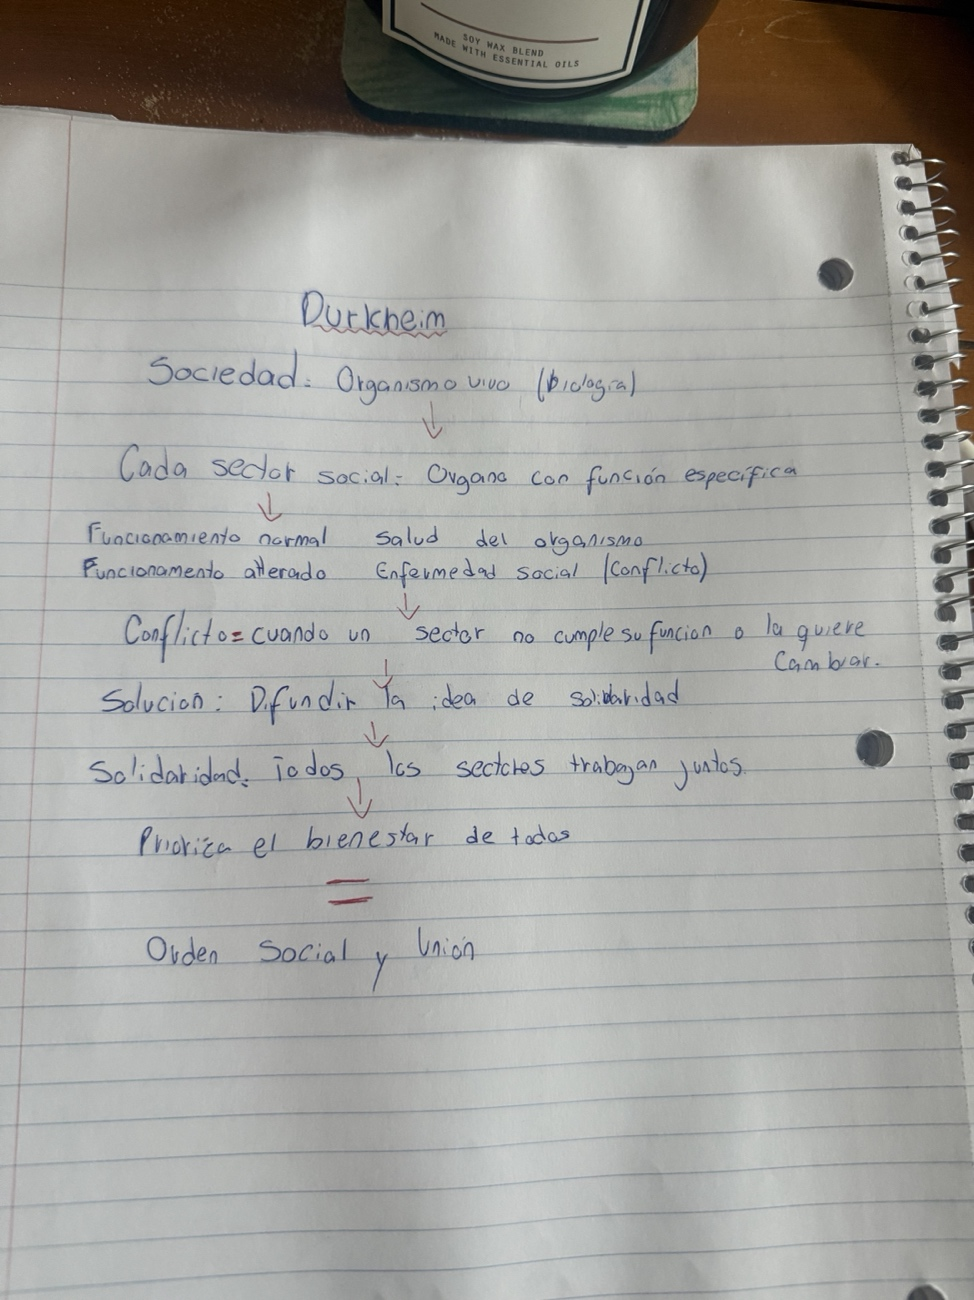 SOY WAX BLEND
MADE WITH ESSENTIAL OILS
Durkheim
Sociedad: Organismo vivo (biologia)
↓
Cada sector social: Organo con función especifica
↓
Funcionamiento normal salud del organismo
Funcionamento alterado Enfermedad social (Conflicto)
↓
Conflicto = cuando un sector no cumple su funcion o la quiere
Cambiar.
↓
Solucion: Difundir la idea de solidaridad
↓
Solidaridad: Todos los sectores trabajan juntos.
↓
Prioriza el bienestar de todos
=
Orden Social y Unión